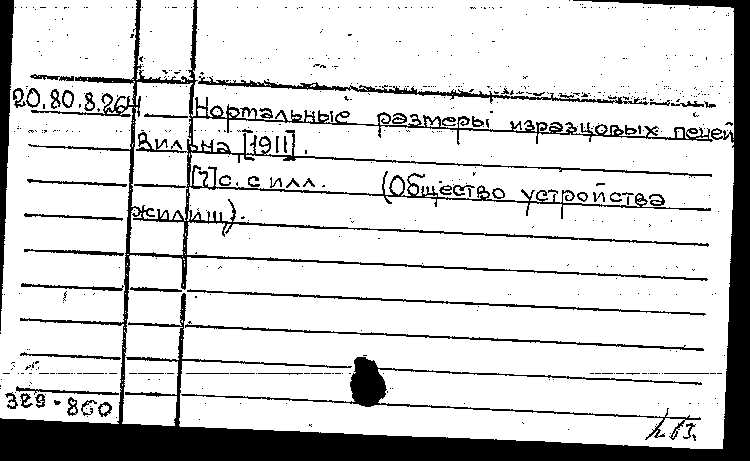 20.80.8.264 Нормальные размеры изразцовых печей
Вильна, [1911].
[7]с. с илл. (Общество устройства
жилищ).
389-860